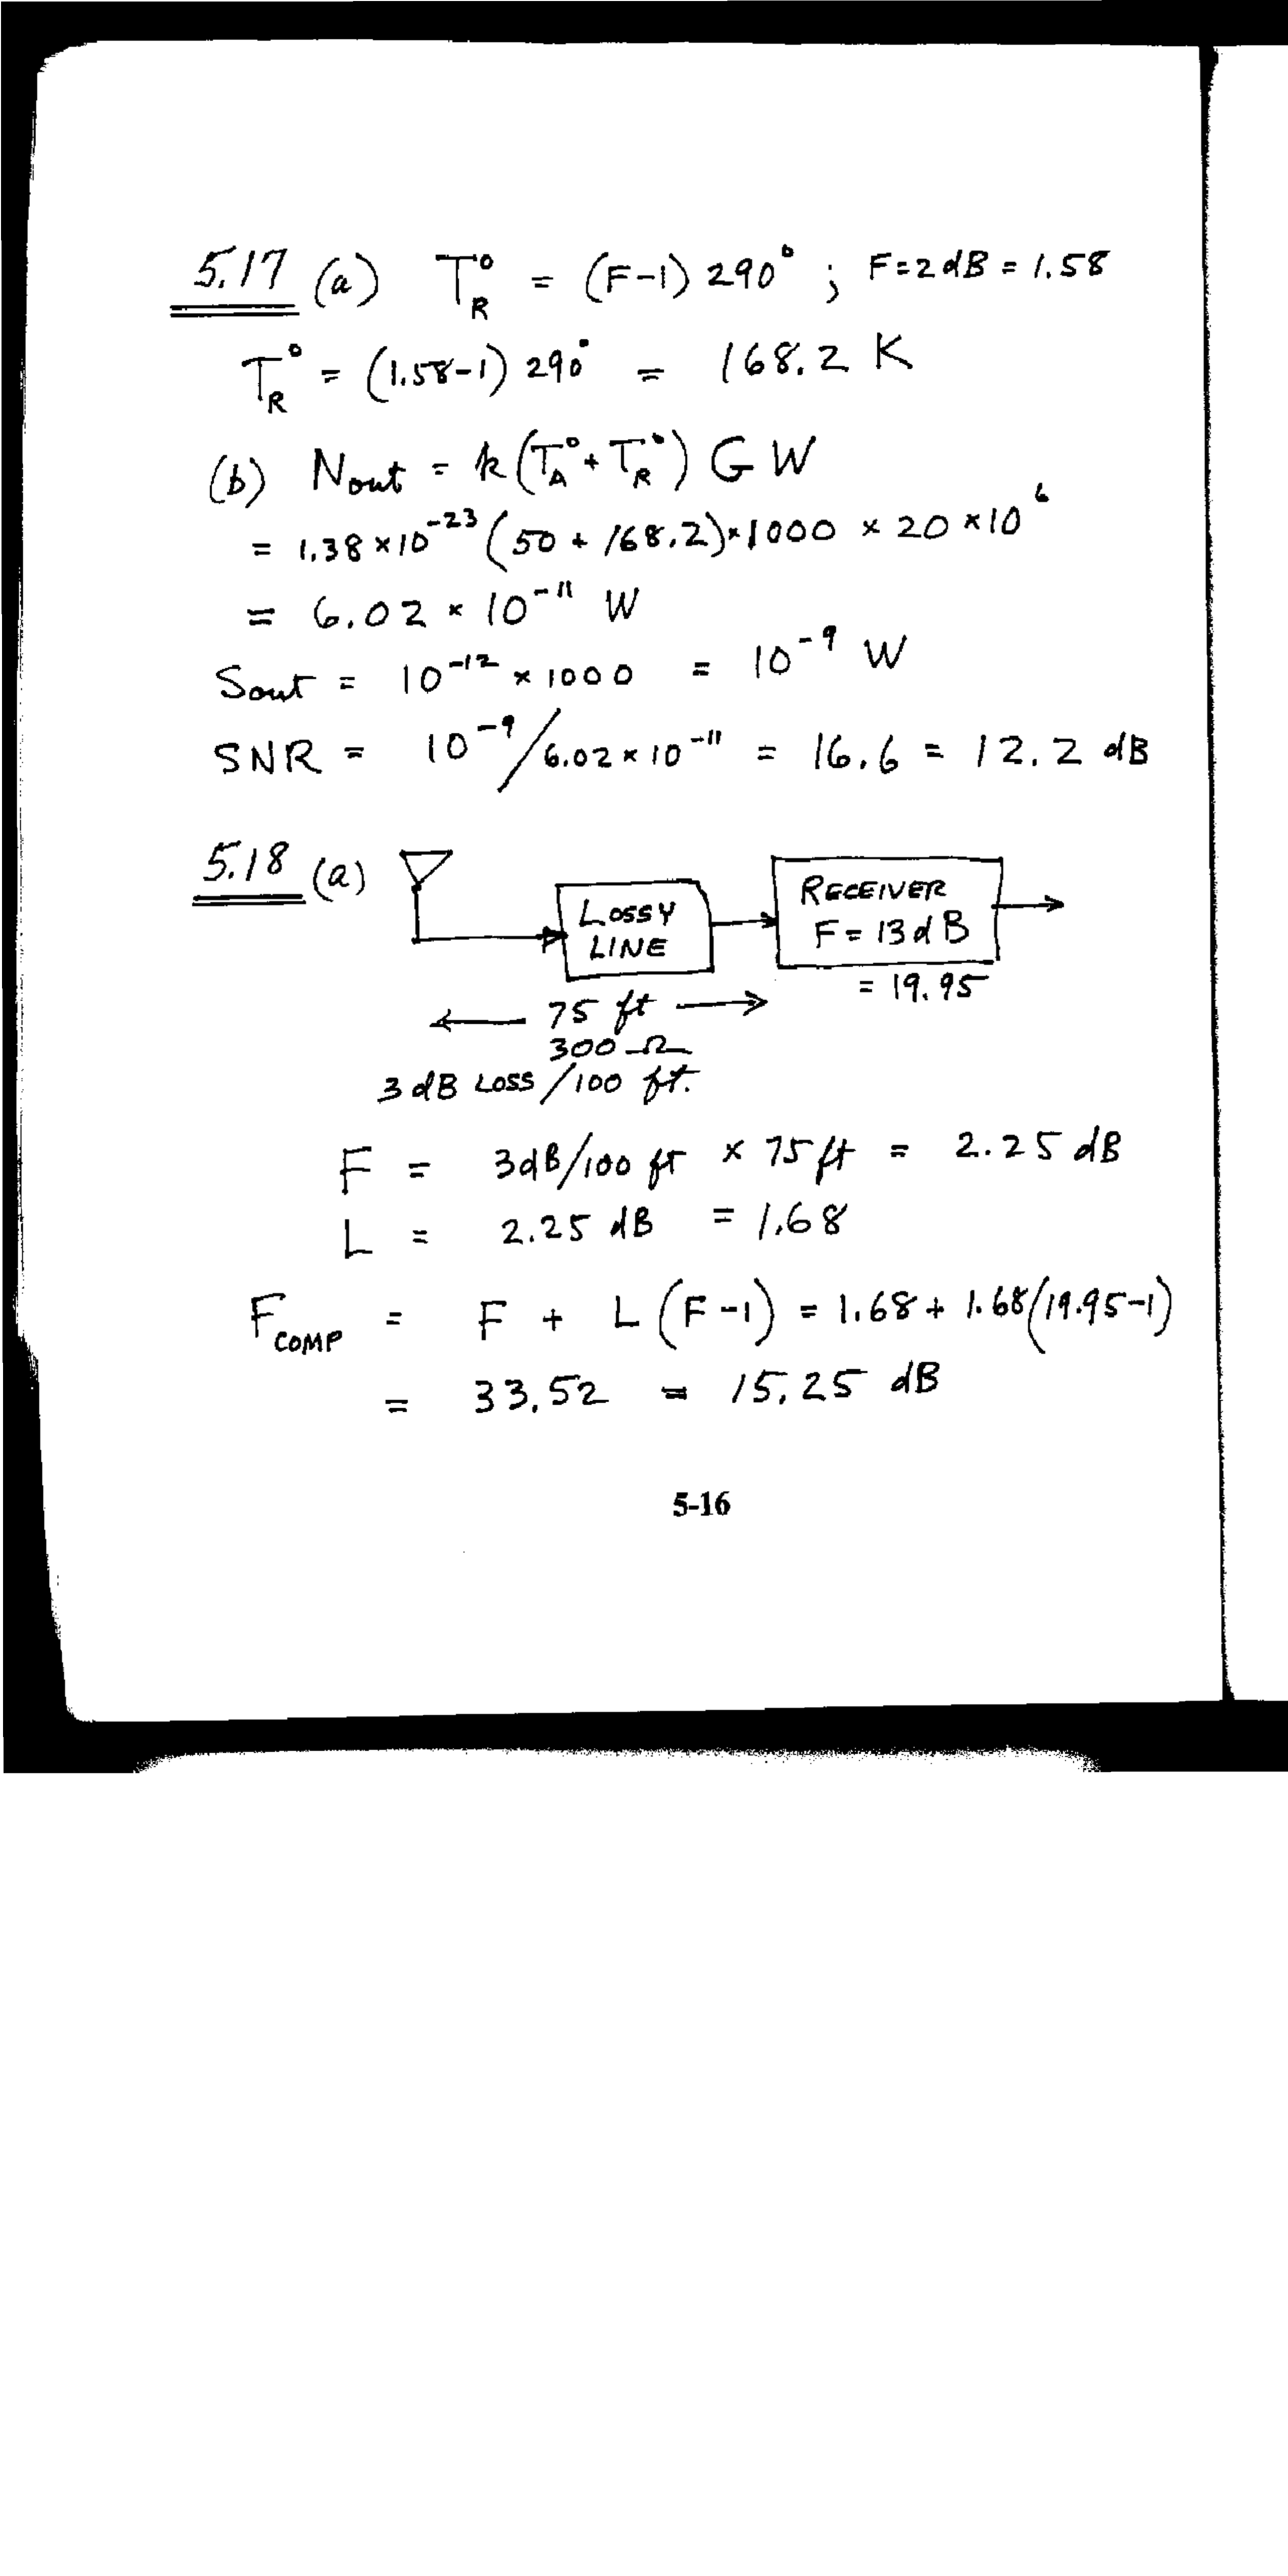 5.17 (a) T°R = (F-1) 290° ; F=2dB = 1.58
T°R = (1.58-1) 290° = 168.2 K
(b) Nout = k(T°A + T°R) G W
= 1.38 × 10^-23 (50 + 168.2) × 1000 × 20 × 10^6
= 6.02 × 10^-11 W
Sout = 10^-12 × 1000 = 10^-9 W
SNR = 10^-9 / 6.02 × 10^-11 = 16.6 = 12.2 dB
5.18 (a)
LOSSY
LINE
RECEIVER
F = 13 dB
= 19.95
75 ft
300 Ω
3 dB LOSS/100 ft.
F = 3dB/100 ft × 75 ft = 2.25 dB
L = 2.25 dB = 1.68
FCOMP = F + L (F-1) = 1.68 + 1.68(19.95-1)
= 33.52 = 15.25 dB
5-16